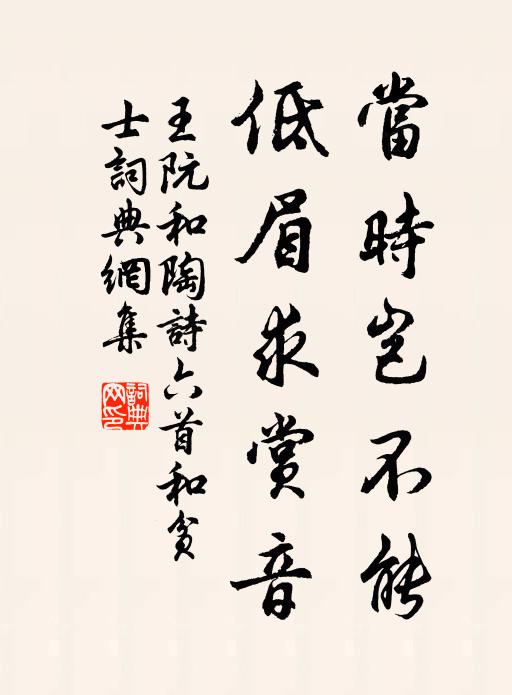 當時豈不能
低眉求賞音
王阮和陶詩六首和貧
士詞典網集
詞典網印